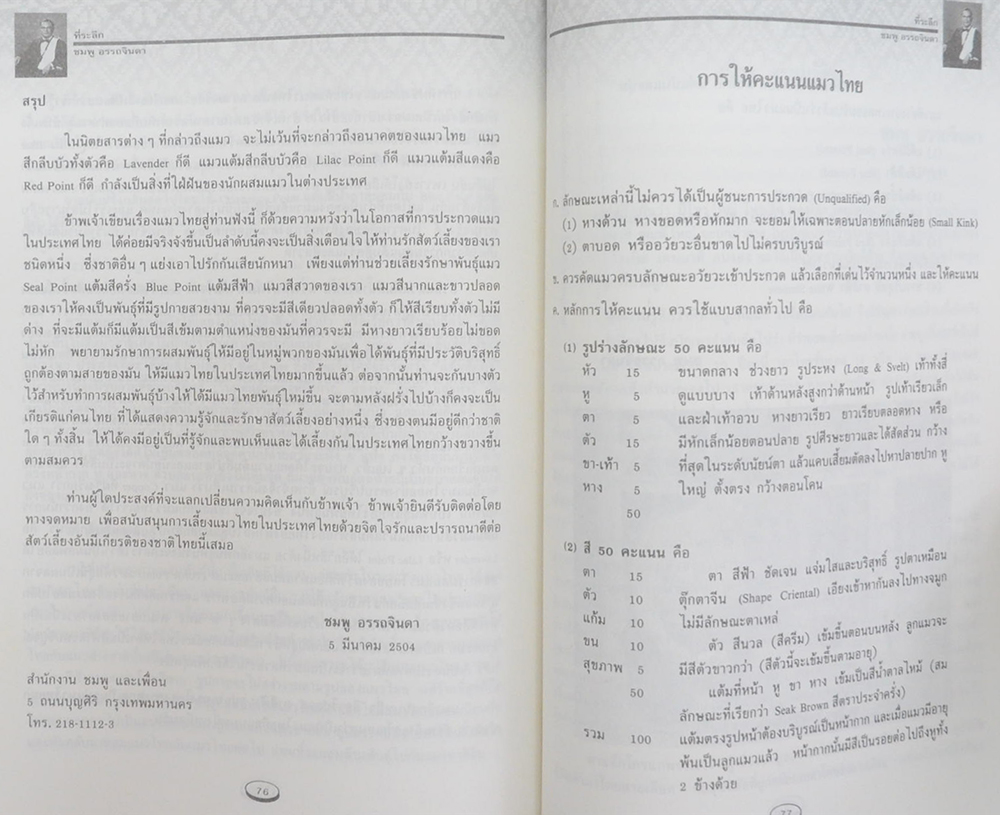 ที่ระลึก
ชมพู อรรถจินดา
สรุป
ในนิตยสารต่าง ๆ ที่กล่าวถึงแมว จะไม่เว้นที่จะกล่าวถึงอนาคตของแมวไทย แมว
สีกลีบบัวทั้งตัวคือ Lavender ก็ดี แมวแต้มสีกลีบบัวคือ Lilac Point ก็ดี แมวแต้มสีแดงคือ
Red Point ก็ดี กำลังเป็นสิ่งที่ใฝ่ฝันของนักผสมแมวในต่างประเทศ
ข้าพเจ้าเขียนเรื่องแมวไทยสู่ท่านฟังนี้ ก็ด้วยความหวังว่าในโอกาสที่การประกวดแมว
ในประเทศไทย ได้ค่อยมีจริงจังขึ้นเป็นลำดับนี้คงจะเป็นสิ่งเตือนใจให้ท่านรักสัตว์เลี้ยงของเรา
ชนิดหนึ่ง ซึ่งชาติอื่น ๆ แย่งเอาไปรักกันเสียนักหนา เพียงแต่ท่านช่วยเลี้ยงรักษาพันธุ์แมว
Seal Point แต้มสีครั่ง Blue Point แต้มสีฟ้า แมวสีสวาดของเรา แมวสีนากและขาวปลอด
ของเราให้คงเป็นพันธุ์ที่มีรูปกายสวยงาม ที่ควรจะมีสีเดียวปลอดทั้งตัว ก็ให้สีเรียบทั้งตัวไม่มี
ด่าง ที่จะมีแต้มก็มีแต้มเป็นสีเข้มตามตำแหน่งของมันที่ควรจะมี มีหางยาวเรียบร้อยไม่ขอด
ไม่หัก พยายามรักษาการผสมพันธุ์ให้มีอยู่ในหมู่พวกของมันเพื่อได้พันธุ์ที่มีประวัติบริสุทธิ์
ถูกต้องตามสายของมัน ให้มีแมวไทยในประเทศไทยมากขึ้นแล้ว ต่อจากนั้นท่านจะกันบางตัว
ไว้สำหรับทำการผสมพันธุ์บ้างให้ได้มีแมวไทยพันธุ์ใหม่ขึ้น จะตามหลังฝรั่งไปบ้างก็คงจะเป็น
เกียรติแก่คนไทย ที่ได้แสดงความรู้จักและรักษาสัตว์เลี้ยงอย่างหนึ่ง ซึ่งของตนมีอยู่ดีกว่าชาติ
ใด ๆ ทั้งสิ้น ให้ได้คงมีอยู่เป็นที่รู้จักและพบเห็นและได้เลี้ยงกันในประเทศไทยกว้างขวางขึ้น
ตามสมควร
ท่านผู้ใดประสงค์ที่จะแลกเปลี่ยนความคิดเห็นกับข้าพเจ้า ข้าพเจ้ายินดีรับติดต่อโดย
ทางจดหมาย เพื่อสนับสนุนการเลี้ยงแมวไทยในประเทศไทยด้วยจิตใจรักและปรารถนาดีต่อ
สัตว์เลี้ยงอันมีเกียรติของชาติไทยนี้เสมอ
ชมพู อรรถจินดา
5 มีนาคม 2504
สำนักงาน ชมพู และเพื่อน
5 ถนนบุญศิริ กรุงเทพมหานคร
โทร. 218-1112-3
76
ที่ระลึก
ชมพู อรรถจินดา
การให้คะแนนแมวไทย
ก. ลักษณะเหล่านี้ไม่ควรได้เป็นผู้ชนะการประกวด (Unqualified) คือ
(1) หางด้วน หางขอดหรือหักมาก จะยอมให้เฉพาะตอนปลายหักเล็กน้อย (Small Kink)
(2) ตาบอด หรืออวัยวะอื่นขาดไปไม่ครบบริบูรณ์
ข. ควรคัดแมวครบลักษณะอวัยวะเข้าประกวด แล้วเลือกที่เด่นไว้จำนวนหนึ่ง และให้คะแนน
ค. หลักการให้คะแนน ควรใช้แบบสากลทั่วไป คือ
(1) รูปร่างลักษณะ 50 คะแนน คือ
หัว 15 ขนาดกลาง ช่วงยาว รูประหง (Long & Svelt) เท้าทั้งสี่
หู 5 ดูแบบบาง เท้าด้านหลังสูงกว่าด้านหน้า รูปเท้าเรียวเล็ก
ตา 5 และฝ่าเท้าอวบ หางยาวเรียว ยาวเรียบตลอดหาง หรือ
ตัว 15 มีหักเล็กน้อยตอนปลาย รูปศีรษะยาวและได้สัดส่วน กว้าง
ขา-เท้า 5 ที่สุดในระดับนัยน์ตา แล้วแคบเสี้ยมตัดลงไปหาปลายปาก หู
หาง 5 ใหญ่ ตั้งตรง กว้างตอนโคน
50
(2) สี 50 คะแนน คือ
ตา 15 ตา สีฟ้า ชัดเจน แจ่มใสและบริสุทธิ์ รูปตาเหมือน
ตัว 10 ตุ๊กตาจีน (Shape Criental) เอียงเข้าหากันลงไปทางจมูก
แก้ม 10 ไม่มีลักษณะตาเหล่
ขน 10 ตัว สีนวล (สีครีม) เข้มขึ้นตอนบนหลัง ลูกแมวจะ
สุขภาพ 5 มีสีตัวขาวกว่า (สีตัวนี้จะเข้มขึ้นตามอายุ)
50 แต้มที่หน้า หู ขา หาง เข้มเป็นสีน้ำตาลไหม้ (สม
ลักษณะที่เรียกว่า Seak Brown สีตราประจำครั่ง)
รวม 100 แต้มตรงรูปหน้าต้องบริบูรณ์เป็นหน้ากาก และเมื่อแมวมีอายุ
พ้นเป็นลูกแมวแล้ว หน้ากากนั้นมีสีเป็นรอยต่อไปถึงหูทั้ง
2 ข้างด้วย
77